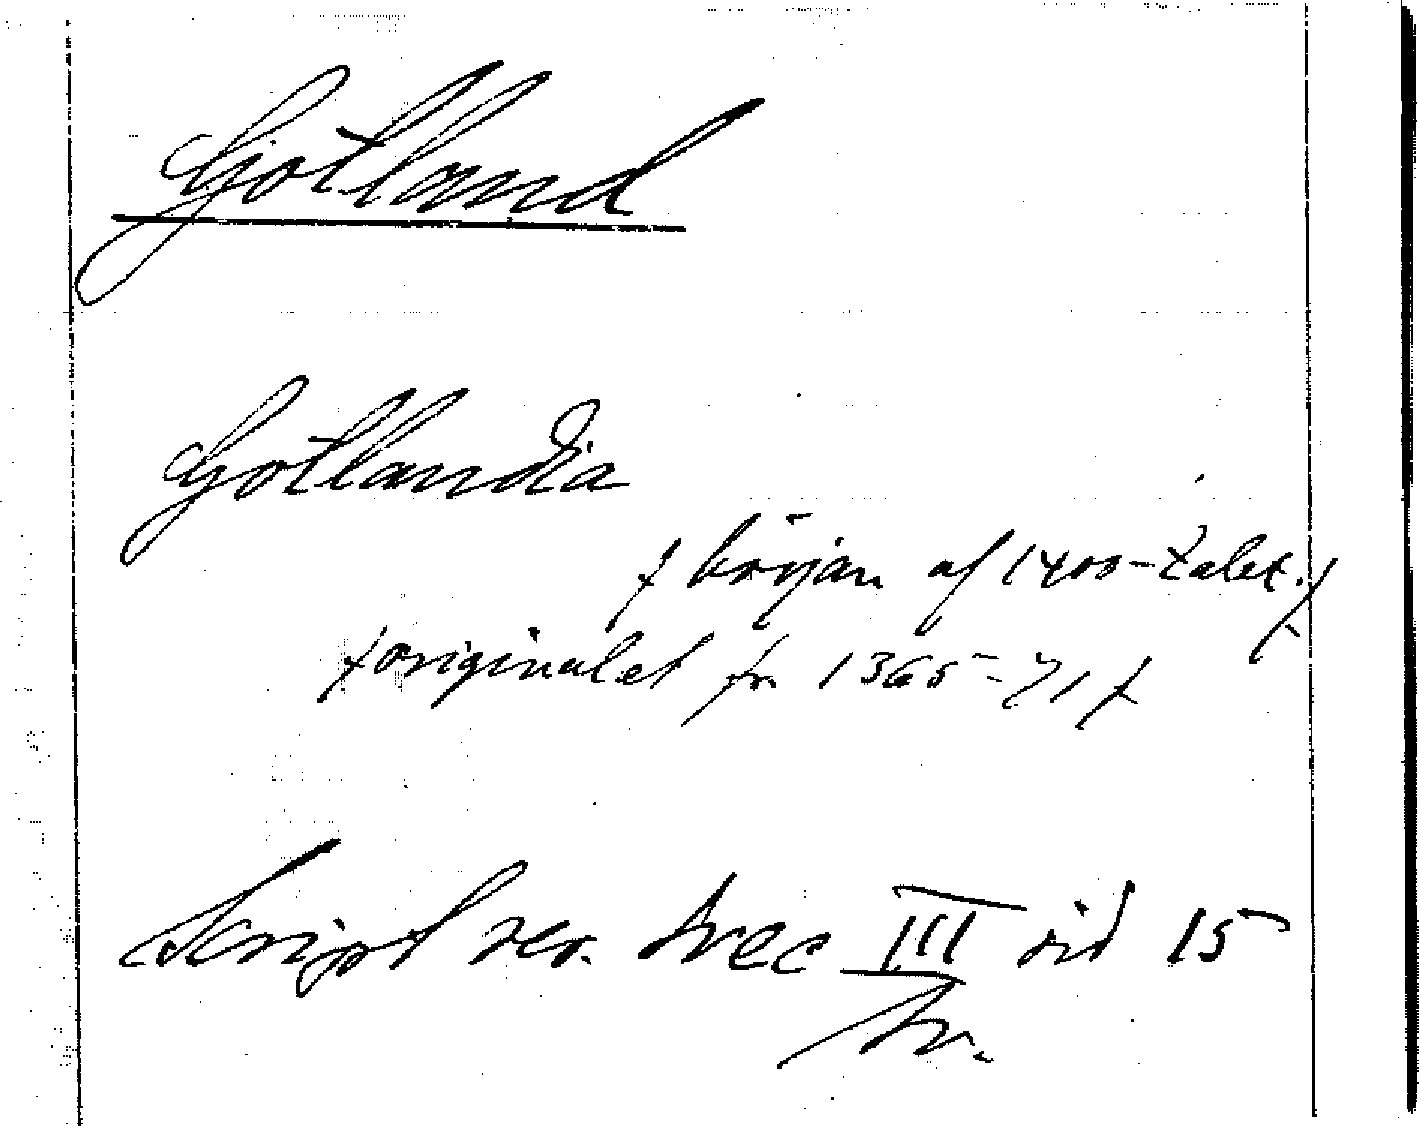 Gotland
Gotlandia
( början af 1400-talet. )
( originalet fr. 1365-71 )
Script rer. svec III sid 15